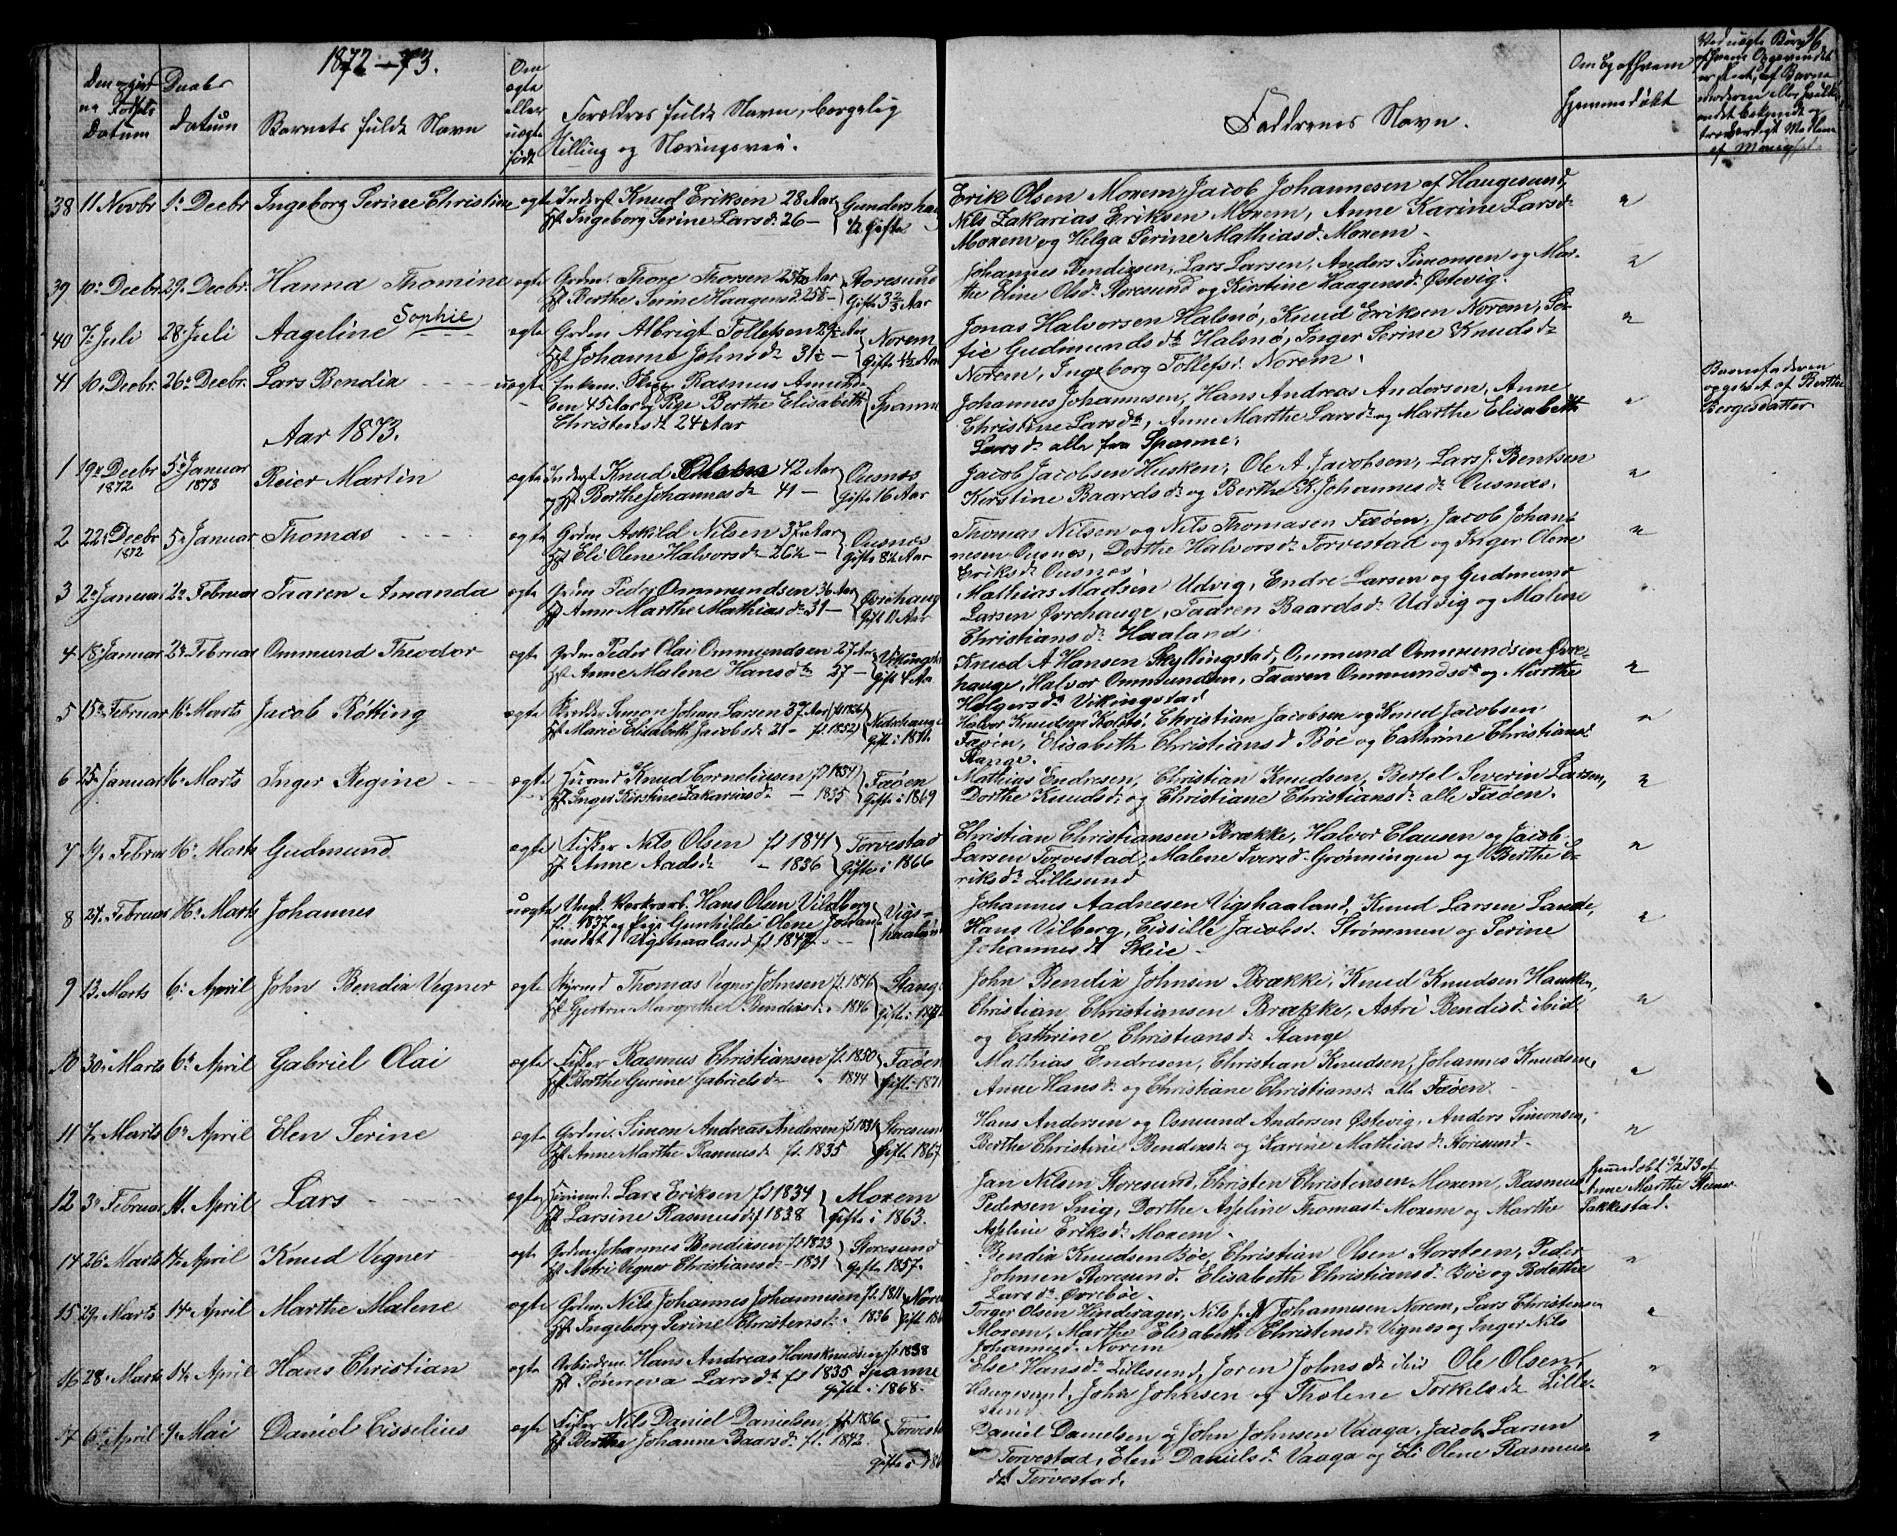 1872-73.
16
Den og ne Fødsels Datum
Daabs Datum
Barnets fulde Navn
Om ægte eller uægte født
Forældres fulde Navn, borgelig Stilling og Næringsvei.
Faddrenes Navn.
Om og af hvem hjemmedøbt
Ved uægte Børn af hvem Opgivendet er skeet, af Barnemoderen eller
38 11 Novbr 1 Decbr Ingeborg Serine Christine ægte Inderst Knud Eriksen 28 Aar
Hst Ingeborg Serine Larsd. 26 - ½ Gifte
Erik Olsen Moxem, Jacob Johannesen af Haugesund,
Nils Zakarias Eriksen Moxem, Anne Karine Larsd.
Moxem og Helga Serine Mathiasd. Moxem.
39 10 Decbr 29 Decbr. Hanna Thomine ægte Grdm. Thore Thorsen Aar Storesund
Hst Berthe Serine Haagens Gifte 3⅔ Aar
Johannes Bendixen, Lars Larsen, Anders Simonsen og Mar-
the Eline Olsd. Storesund og Kirstine Haagensd. Østevig.
40 7 Juli 28 Juli Aageline Sophie ægte Grdm Albrigt Tollefsen Norem
Hst Johanne Johnsd. 31½ - Gifte Aar
Jonas Halvorsen Halsnø, Knud Eriksen Norem, So-
fie Gudmundsdt. Halsnø, Inger Serine Knudsdr.
Norem, Ingeborg Tollefsd. Norem.
41 10 Decbr. 26 Decbr. Lars Bendix uægte Enkem. Rasmus Amund-
sen 45 Aar og Pige Berthe Elisabeth Spanne
Christensd. 24 Aar
Johannes Johannesen, Hans Andreas Andersen, Anne
Christine Larsdt, Anne Marthe Larsd. og Marthe Elisabeth
Larsd. alle fra Spanne.
Barnefaderen opgivet af Berthe Børgesdatter
Aar 1873.
1 19 Decbr 1872 5 Januar 1873 Reier Martin ægte Inderst Knud Olsen 42 Aar Ousnæs
og Hst Berthe Johannesd. 41 - Gifte 16 Aar
Jacob Jacobsen Husken, Ole A. Jacobsen, Lars J. Bentsen
Kirstine Baardsd. og Berthe K. Johannesd. Ousnæs.
2 22 Decbr 1872 5 Januar Thomas ægte Grdm Askild Nilsen 37 Aar Ousnæs
Hst Eli Olene Halvorsd. 26½ - Gifte 8½ Aar
Thomas Nilsen og Nils Thomasen Faøen, Jacob Johan-
nesen Ousnæs, Dorthe Halvorsd. Torvestad og Inger Olene
Eriksd. Ousnæs.
3 2 Januar 2 Februar Taaren Amanda ægte Grdm Peder Ommundsen 36 Aar Ørrehaug
Hst Anne Marthe Mathiasd. 31 - Gift 11 Aar
Mathias Madsen Udvig, Endre Larsen og Gudmund
Larsen Ørrehauge, Taaren Baardsd. Udvig og Malene
Christiansd. Haaland.
4 18 Januar 2 Februar Ommund Theodor ægte Grdm Peder Olai Ommundsen 27 Aar
Hst Anne Malene Hansdt. 27 - Gift 4 Aar
Knud A Hansen Skyllingstad, Ommund Ommundsen Ørre-
hauge, Halvor Ommundsen, Taaren Ommundsd. og Marthe
Holgersd. Vikingstad
5 15 Februar 16 Marts Jacob Røtting ægte Simon Johan Larsen 37 Aar f. 1836 Nederhauge
Hst Marie Elisabeth Jacobsd. 21 - f. 1852 Gifte i 1871.
Halvor Knudsen Kolstø, Christian Jacobsen og Knud Jacobsen
Faøen, Elisabeth Christiansd Bøe og Cathrine Christiansd
Stange.
6 25 Januar 16 Marts Inger Regine ægte Knud Corneliusen f. 1834 Faøen
Hst Inger Kirstine Zakariasd. - 1835 Gifte i 1869
Mathias Endresen, Christian Knudsen, Bertel Severin Larsen,
Dorthe Knudsd. og Christiane Christiansd. alle Faøen.
7 Februar 16 Marts Gudmund ægte Fisker Nils Olsen f. 1841 Torvestad
Hst Anne Aadsd. - 1836 Gifte i 1866
Christian Christiansen Brække, Halvor Clausen og Jacob
Larsen Torvestad, Malene Iversd. Grønningen og Berthe E-
riksd. Lillesund
8 24 Februar 16 Marts Johannes uægte Ungk. Hans Olsen Vilberg
f. 1837 og Pige Gunhilde Olene Johan- Vigs-
nesdt Vigshaaland f. 1847 haaland
Johannes Aadnesen Vigshaaland, Knud Larsen Sande,
Hans Vilberg, Cissille Jacobsd. Strømmen og Serine
Johannesdt Skeie.
9 13 Marts 6 April John Bendix Vegner ægte Thomas Vegner Johnsen f. 1846 Stange
Hst Gjertrue Margrethe Bendixsd. - 1846 Gifte i
John Bendix Johnsen Brække, Knud Knudsen Hauken,
Christian Christiansen Brække, Astri Bendixd. ibid.
og Cathrine Christiansd. Stange
10 30 Marts 6 April Gabriel Olai ægte Fisker Rasmus Christiansen f. 1850 Faøen
Hst Berthe Gurine Gabrielsd. 1844 Gifte 1871
Mathias Endresen, Christian Knudsen, Johannes Knudsen,
Anne Hansd. og Christiane Christiansd. alle Faøen.
11 7 Marts 6 April Elen Serine ægte Grdm. Simon Andreas Andersen f. 1831 Storesund
Hst Anne Marthe Rasmusd. f. 1835 Gifte 1867
Hans Andersen og Osmund Andersen Østevig, Anders Simonsen,
Berthe Christine Bendixd. og Karine Mathiasd. Storesund.
12 3 Februar 11 April Lars ægte Lars Eriksen f. 1834 Moxem
Hst Larsine Rasmusd. f. 1838 Gifte i 1863.
Jan Nilsen Storesund, Christen Christensen Moxem, Rasmus
Pedersen Snig, Dorthe Aspeline Thomasd. Moxem og Marthe
Aspeline Eriksd. Moxem.
Hjemmedøbt 9/2 73 af Anne Marthe Sakkestad.
14 26 Marts 14 April Knud Vegner ægte Grdm Johannes Bendixen f. 1823 Storesund
Hst Astri Vegner Christiansd. - 1831 Gifte 1857.
Bendix Knudsen Bøe, Christian Olsen Storsteen, Peder
Johnsen Storesund, Elisabeth Christiansd. Bøe og Bolethe
Larsd. Ørrebøe.
15 29 Marts 14 April Marthe Malene ægte Grdm. Nils Johannes Johannesen f. 1811
Hst Ingeborg Serine Christensd. 1836
Torger Olsen Hinderager, Nils J. Johannesen Norem, Lars Christensen
Moxem, Marthe Elisabeth Christensd. Vignes og Inger Nils
Johannesd. Norem
16 28 Marts 14 April Hans Christian ægte Arbeidsm. Hans Andreas Hans Knudsen f. 1838
Hst Sønneva Larsdt. f. 1835 Spanne
Gifte i 1868.
Else Hansd. Lillesund, Joren Johnsdt. ibid Ole Olsen
Haugesund, John Johnsen og Tholene Torkelsd. Lille-
sund.
17 6 April 9 Mai Daniel Cisselius ægte Fisker Nils Daniel Danielsen f. 1836
Hst Berthe Johanne Baarsd. f. 1842. Torvestad
Gifte i
Daniel Danielsen og John Johnsen Vaaga, Jacob Larsen
Torvestad, Elen Danielsd. Vaaga og Eli Olene Rasmus-
dt. Torvestad.